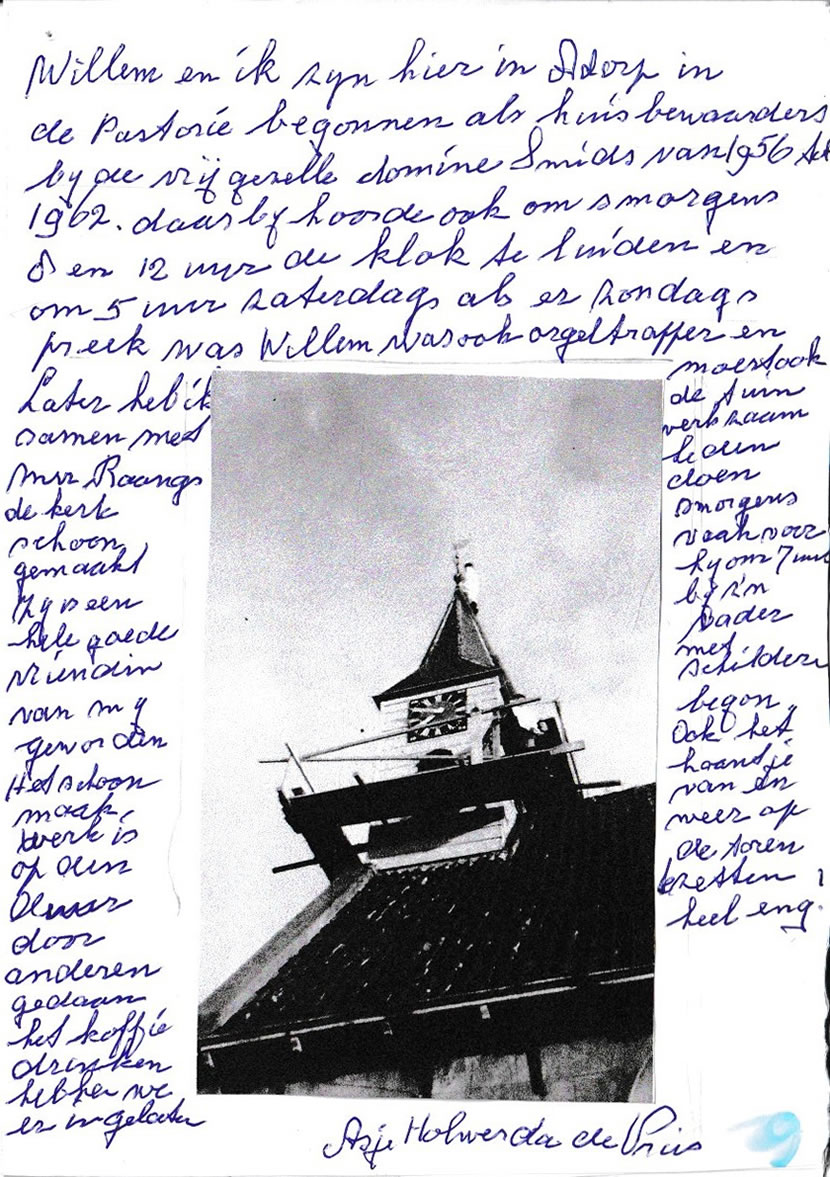 Willem en ik zyn hier in Adorp in
de Pastorie begonnen als huisbewaarders
by de vrijgezelle domine Smids van 1956 tot
1962. daar by hoorde ook om smorgens
8 en 12 uur de klok te luiden en
om 5 uur zaterdags als er zondags
preek was Willem was ook orgeltrapper en
moest ook
de tuin
werkzaam
heden
doen
smorgens
vaak voor
hy om 7 uur
by z'n
vader
met
schilderen
begon
Ook het
haantje
van en
weer op
de toren
zetten
heel eng.
Later heb ik
samen met
mvr Raangs
de kerk
schoon
gemaakt
Zy is een
hele goede
vriendin
van my
geworden
Het schoon
maak
werk is
op den
duur
door
anderen
gedaan
het koffie
drinken
hebben we
er in gelaten
Asje Holwerda de Vries
9